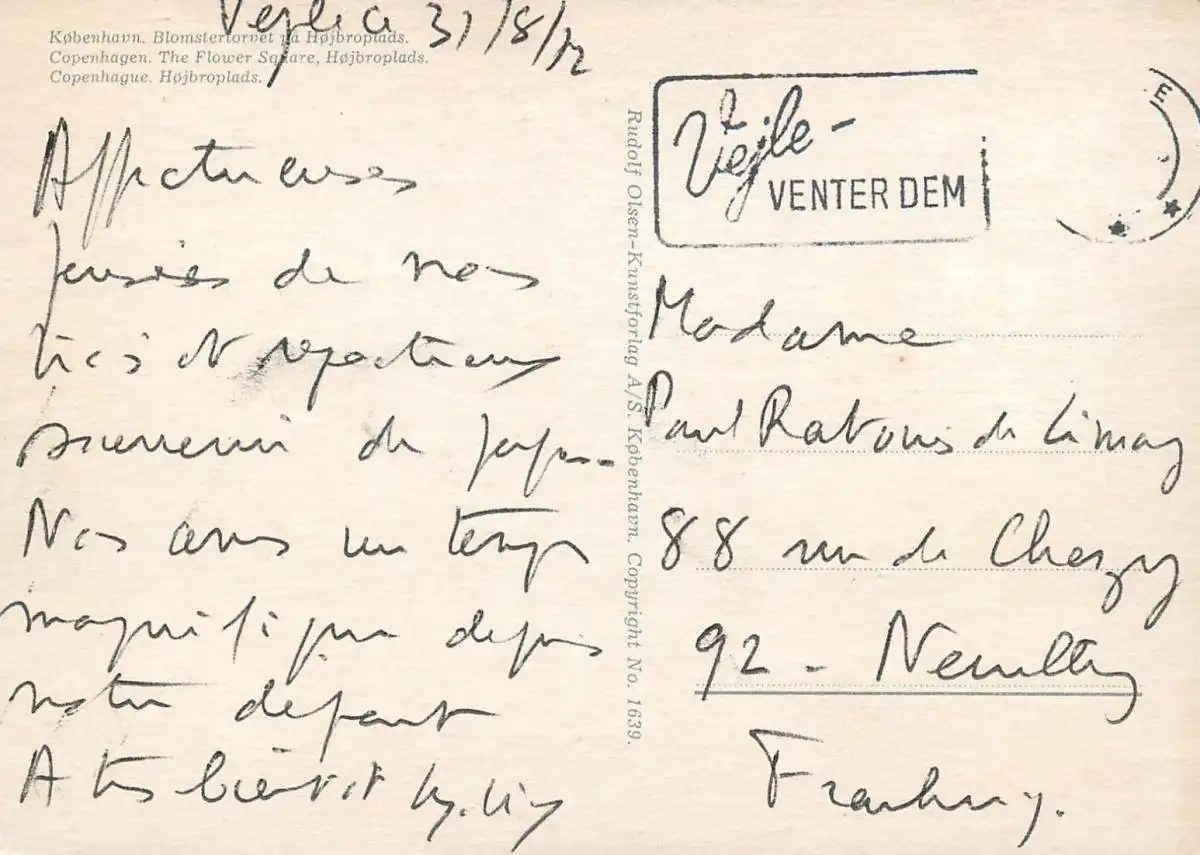 Vejle le 31/8/72
København. Blomstertorvet på Højbroplads.
Copenhagen. The Flower Square, Højbroplads.
Copenhague. Højbroplads.
Affectueuses
pensées de nous
trois et respectueux
souvenir de
Nous avons un temps
magnifique depuis
notre départ
A très bientôt
Rudolf Olsen-Kunstforlag A/S. København. Copyright No. 1639.
Vejle-
VENTER DEM
E
Madame
Paul Ratouis de Limay
88 rue de Chezy
92 - Neuilly